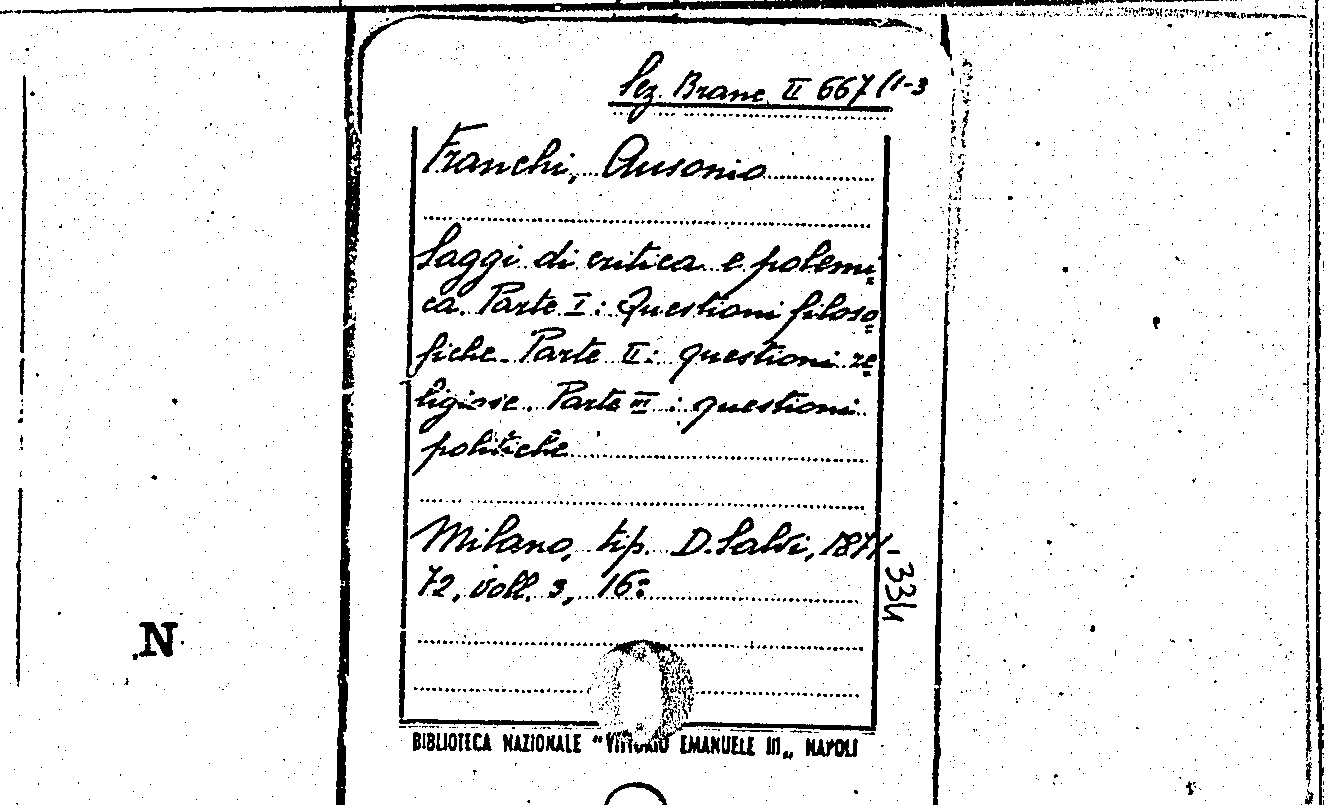 Sez. Branc. II 667 (1-3
Franchi, Ausonio
Saggi di critica e polemi
ca. Parte I: Questioni filoso
fiche. Parte II: questioni re
ligiose. Parte III: questioni
politiche
Milano, tip. D. Salvi, 1871-
72, voll. 3, 16º
334
N
BIBLIOTECA NAZIONALE "VITTORIO EMANUELE III„ NAPOLI